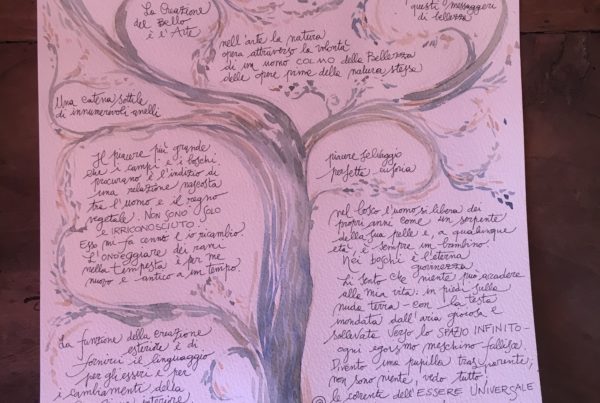 La Creazione
del Bello
è l'Arte
questi messaggeri
di bellezza
nell'arte la natura
opera attraverso la volontà
di un uomo COLMO della Bellezza
delle opere prime della natura stessa
Una catena sottile
di innumerevoli anelli
Il piacere più grande
che i campi e i boschi
procurano è l'indizio di
una relazione nascosta
tra l'uomo e il regno
vegetale. NON SONO SOLO
e IRRICONOSCIUTO.
Esso mi fa cenno e io ricambio.
L'ONDEGGIARE dei rami
nella tempesta è per me
nuovo e antico a un tempo.
piacere selvaggio
perfetta euforia
nel bosco l'uomo si libera dei
propri anni come un serpente
della sua pelle e, a qualunque
età è sempre un bambino.
Nei boschi è l'eterna
giovinezza
Lì sento che niente può accadere
alla mia vita: in piedi sulla
nuda terra - con la testa
mondata dall'aria gioiosa e
sollevata verso lo SPAZIO INFINITO -
ogni egoismo meschino fallisce.
Divento una pupilla trasparente;
non sono niente, vedo tutto;
le corrente dell'ESSERE UNIVERSALE
La funzione della creazione
esteriore è di
fornirci il linguaggio
per gli esseri e per
i cambiamenti della
interiore